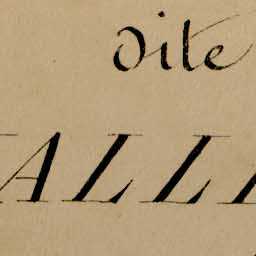 dite
ALL